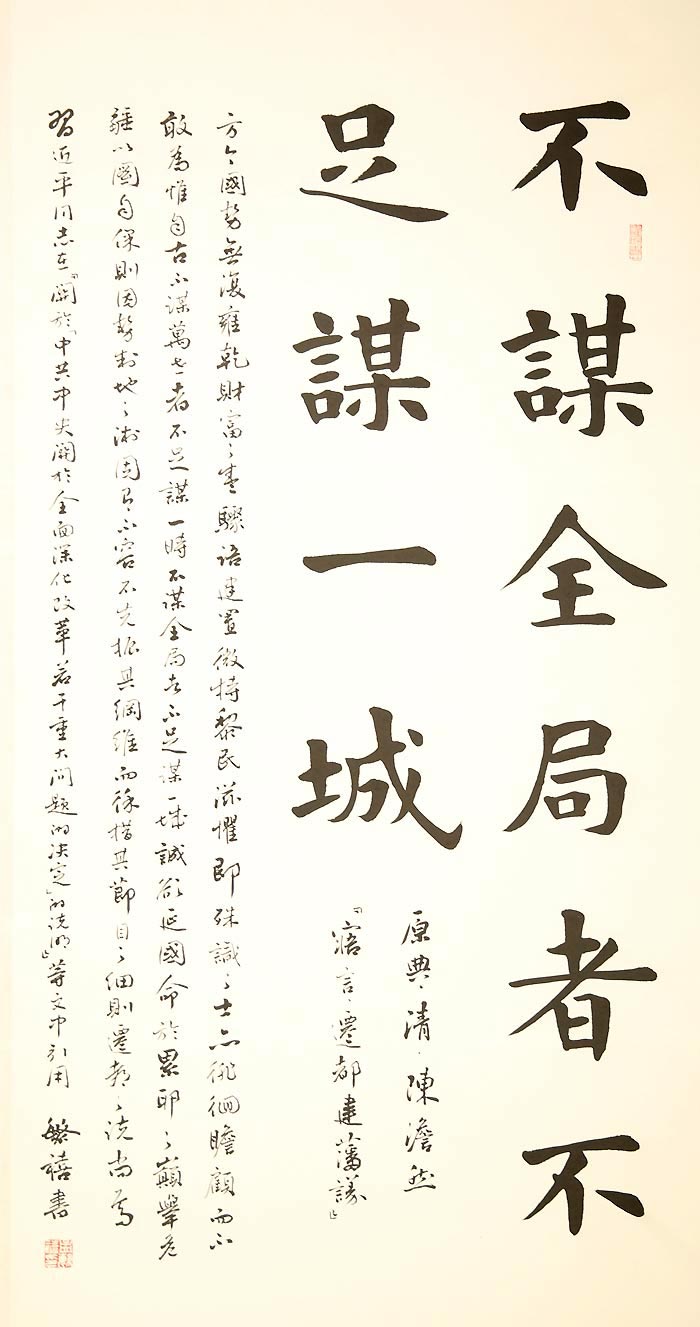 不謀全局者不
足謀一城
原典、清、陳澹然
『寤言、遷都建藩議』
方今國勢無復雍乾財富之盛驟語建置微特黎民滋懼即殊識之士亦徘徊瞻顧而不
敢為惟自古不謀萬世者不足謀一時不謀全局者不足謀一城誠欲延國命於累卵之巔舉危
疆以圖自保則因勢制地之術固有不容不先振其綱維而徐措其節目之細則遷都之說尚焉
習近平同志在『關於「中共中央關於全面深化改革若干重大問題的決定」的說明』等文中引用
繁禧書